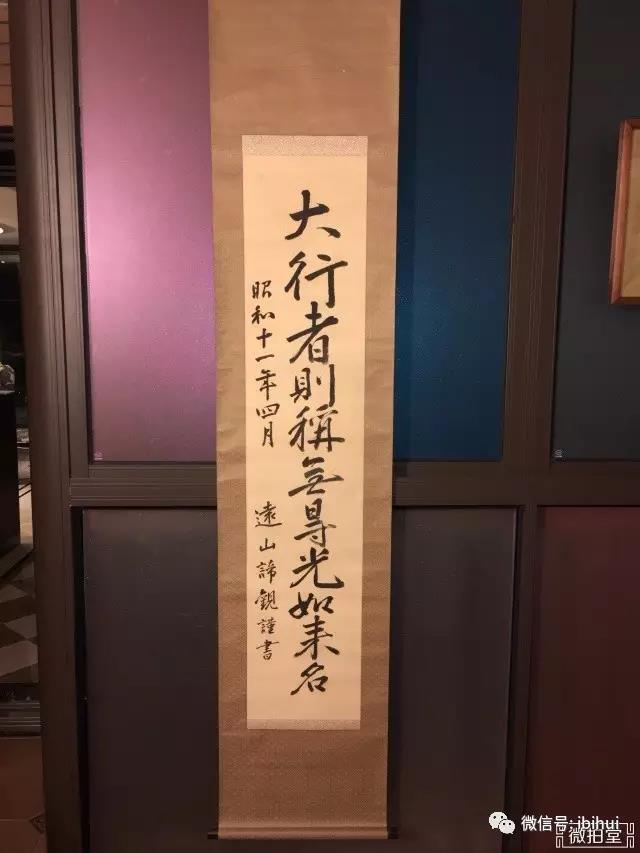 大行者則稱無㝵光如来名
昭和十一年四月
遠山諦観謹書
微信号: jbihui
微拍堂